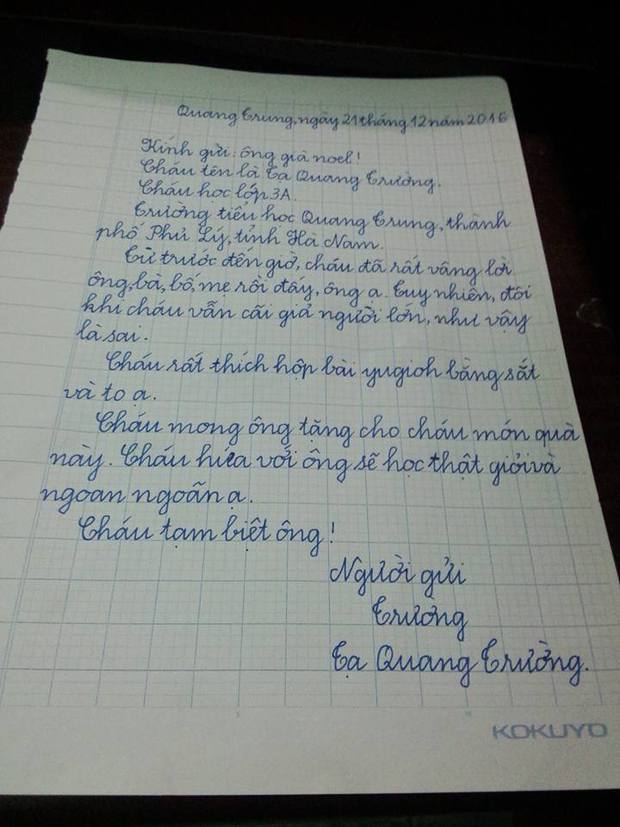 Quang Trung, ngày 21 tháng 12 năm 2016
Kính gửi: ông già noel!
Cháu tên là Tạ Quang Trường.
Cháu học lớp 3A.
Trường tiểu học Quang Trung, thành
phố Phủ Lý, tỉnh Hà Nam.
Từ trước đến giờ, cháu đã rất vâng lời
ông, bà, bố, mẹ rồi đấy, ông ạ. Tuy nhiên, đôi
khi cháu vẫn cãi giả người lớn, như vậy
là sai.
Cháu rất thích hộp bài yugioh bằng sắt
và to ạ.
Cháu mong ông tặng cho cháu món quà
này. Cháu hứa với ông sẽ học thật giỏi và
ngoan ngoãn ạ.
Cháu tạm biệt ông!
Người gửi
Trường
Tạ Quang Trường.
KOKUYO